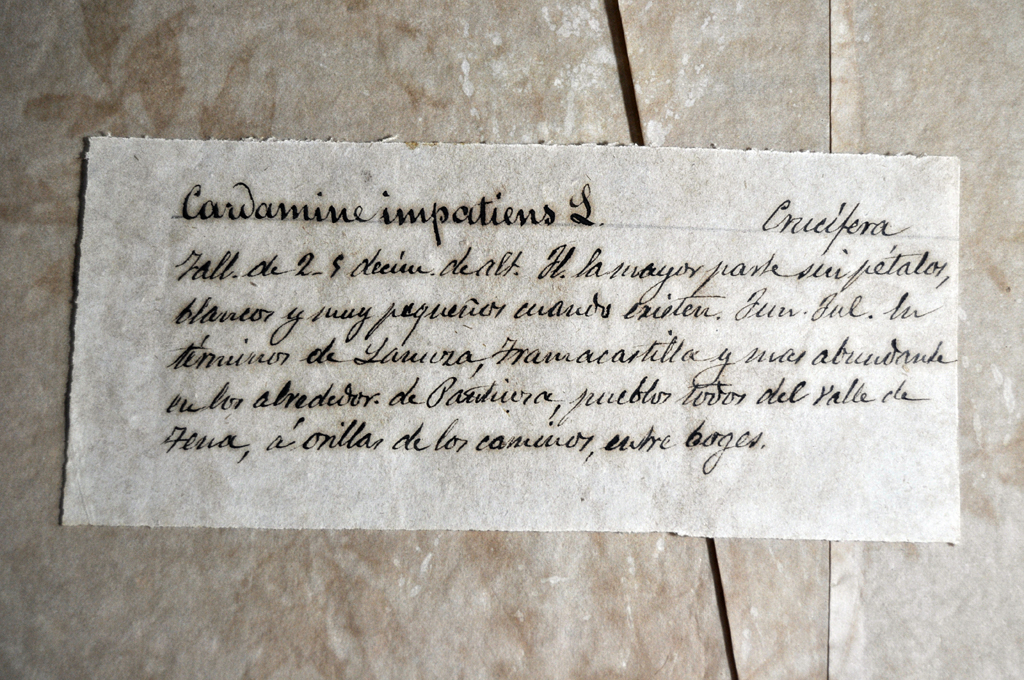 Cardamine impatiens L. Crucífera
Tall. de 2-5 decim. de alt. Fl. la mayor parte sin pétalos,
blancos y muy pequeños cuando existen. Jun. Jul. En
términos de Lanuza, Tramacastilla y mas abundante
en los alrededor. de Panticosa, pueblos todos del valle de
Tena, á orillas de los caminos, entre boges.